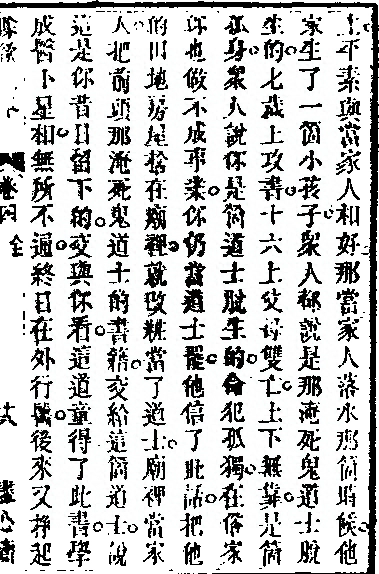 士平素與當家人和好那當家人落水那箇時候他
家生了一箇小孩子衆人都說是那淹死鬼道士脫
生的七歲上攻書十六上父母雙亡上下無靠是箇
孤身衆人說你是箇道士脫生的命犯孤獨在俗家
你也做不成事業你仍當道士罷他信了此話把他
的田地房屋捨在廟裡就改粧當了道士廟裡當家
人把前頭那淹死鬼道士的書籍交給這箇道士說
這是你昔日留下的交與你看這道童得了此書學
成醫卜星相無所不通終日在外行醫後來又掙起
卷四 全